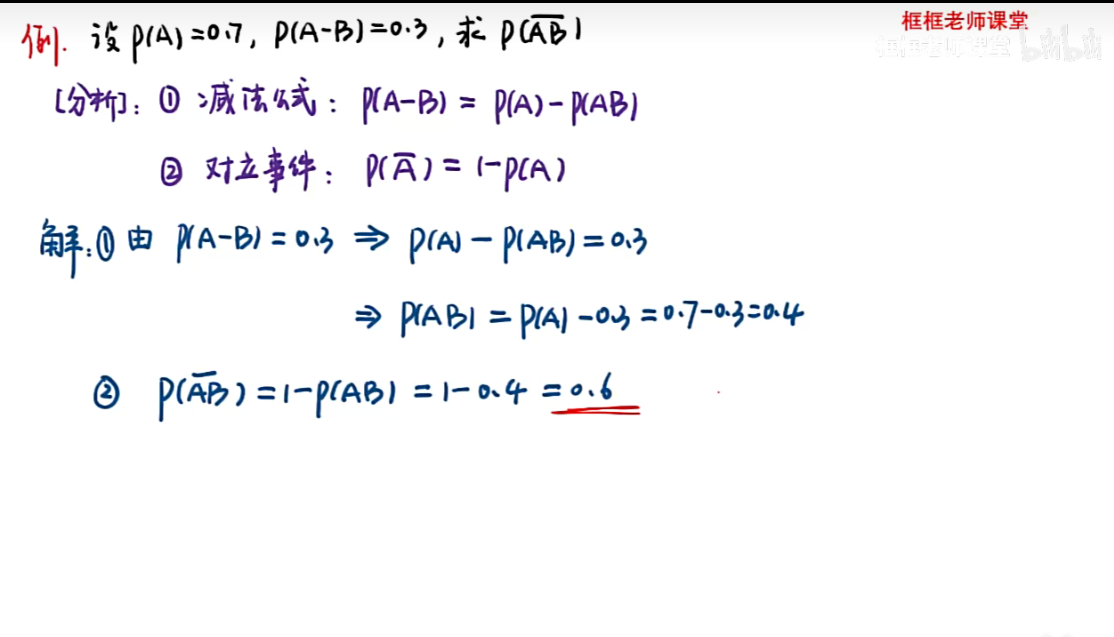 框框老师课堂
例. 设 P(A)=0.7, P(A-B)=0.3, 求 P(\overline{AB})
框框老师课堂 bilibili
[分析]: ① 减法公式: P(A-B) = P(A)-P(AB)
② 对立事件: P(\overline{A}) = 1-P(A)
解: ① 由 P(A-B) = 0.3 ⇒ P(A) - P(AB) = 0.3
⇒ P(AB) = P(A) - 0.3 = 0.7-0.3=0.4
② P(\overline{AB}) = 1-P(AB) = 1-0.4 = 0.6